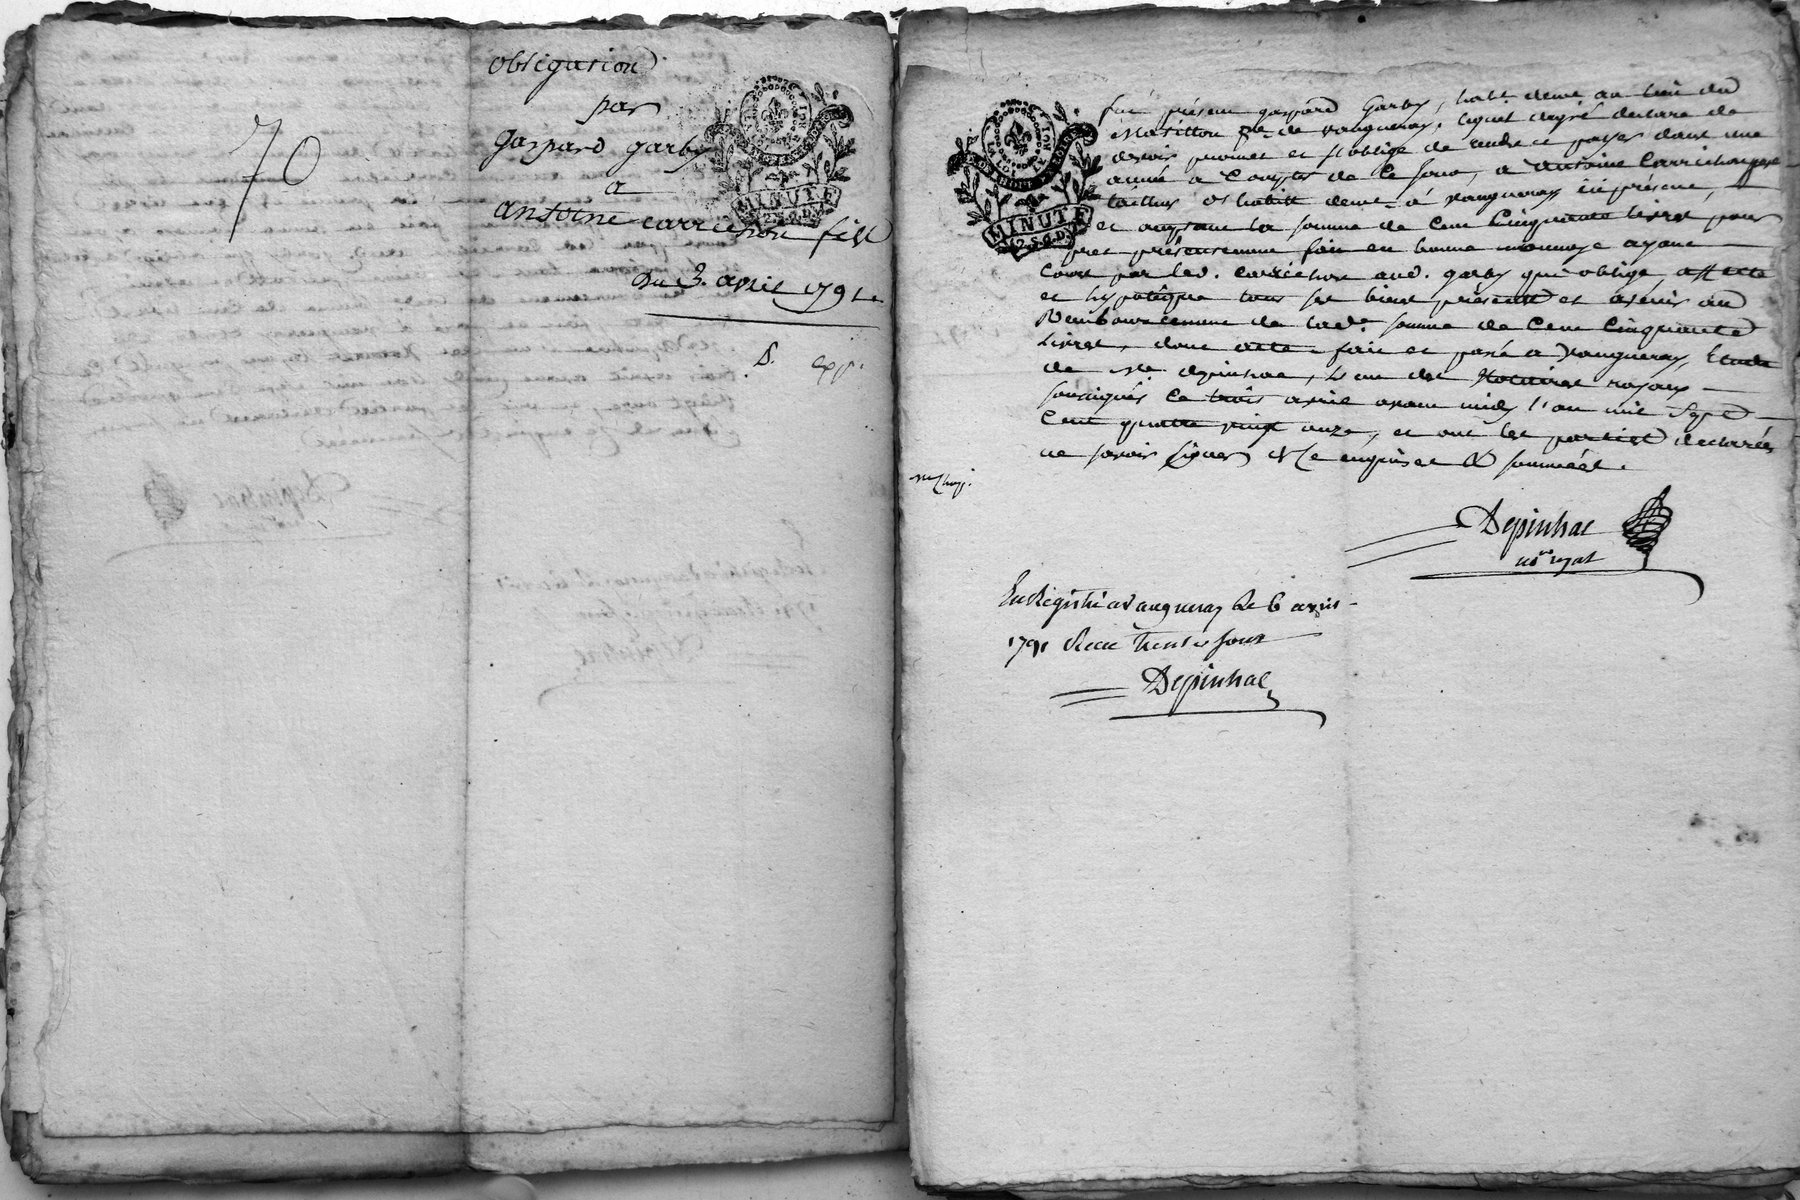 70
obligation
par
gaspard garby
a
antoine carrichon fils
MINUTE
2.S.6.D
du 3. avril 1791.
MINUTE
2.S.6.D
fut présent gaspard Garby, habt. demt au lieu du
Marillon psse de vaugneray, lequel de gré declare
devoir promet et s'oblige de rendre et payer dans une
année a compter de ce jour, a antoine Carrichon
tailleur d'habits demt a vaugneray icy présent,
et acceptant la somme de Cent Cinquante livres pour
pret présentement fait en bonne monnoye ayant
Cours par led. Carrichon aud. garby qui oblige, affecte
et hypotèque tous ses biens présents et avenir au
Remboursement de lade. somme de Cent Cinquante
livres, dont acte. fait et passé a Vaugneray, Etude
de Me. depinhac, l'un des Notaires royaux
soussignés le trois avril avant midy l'an mil Sept
Cent quatre vingt onze, et ont les parties déclarées
ne savoir signer de ce enquises & sommées.
Depinhac
nore royal
Enregistré a Vaugneray le 6 avril
1791 Reçu trente sous
Depinhac